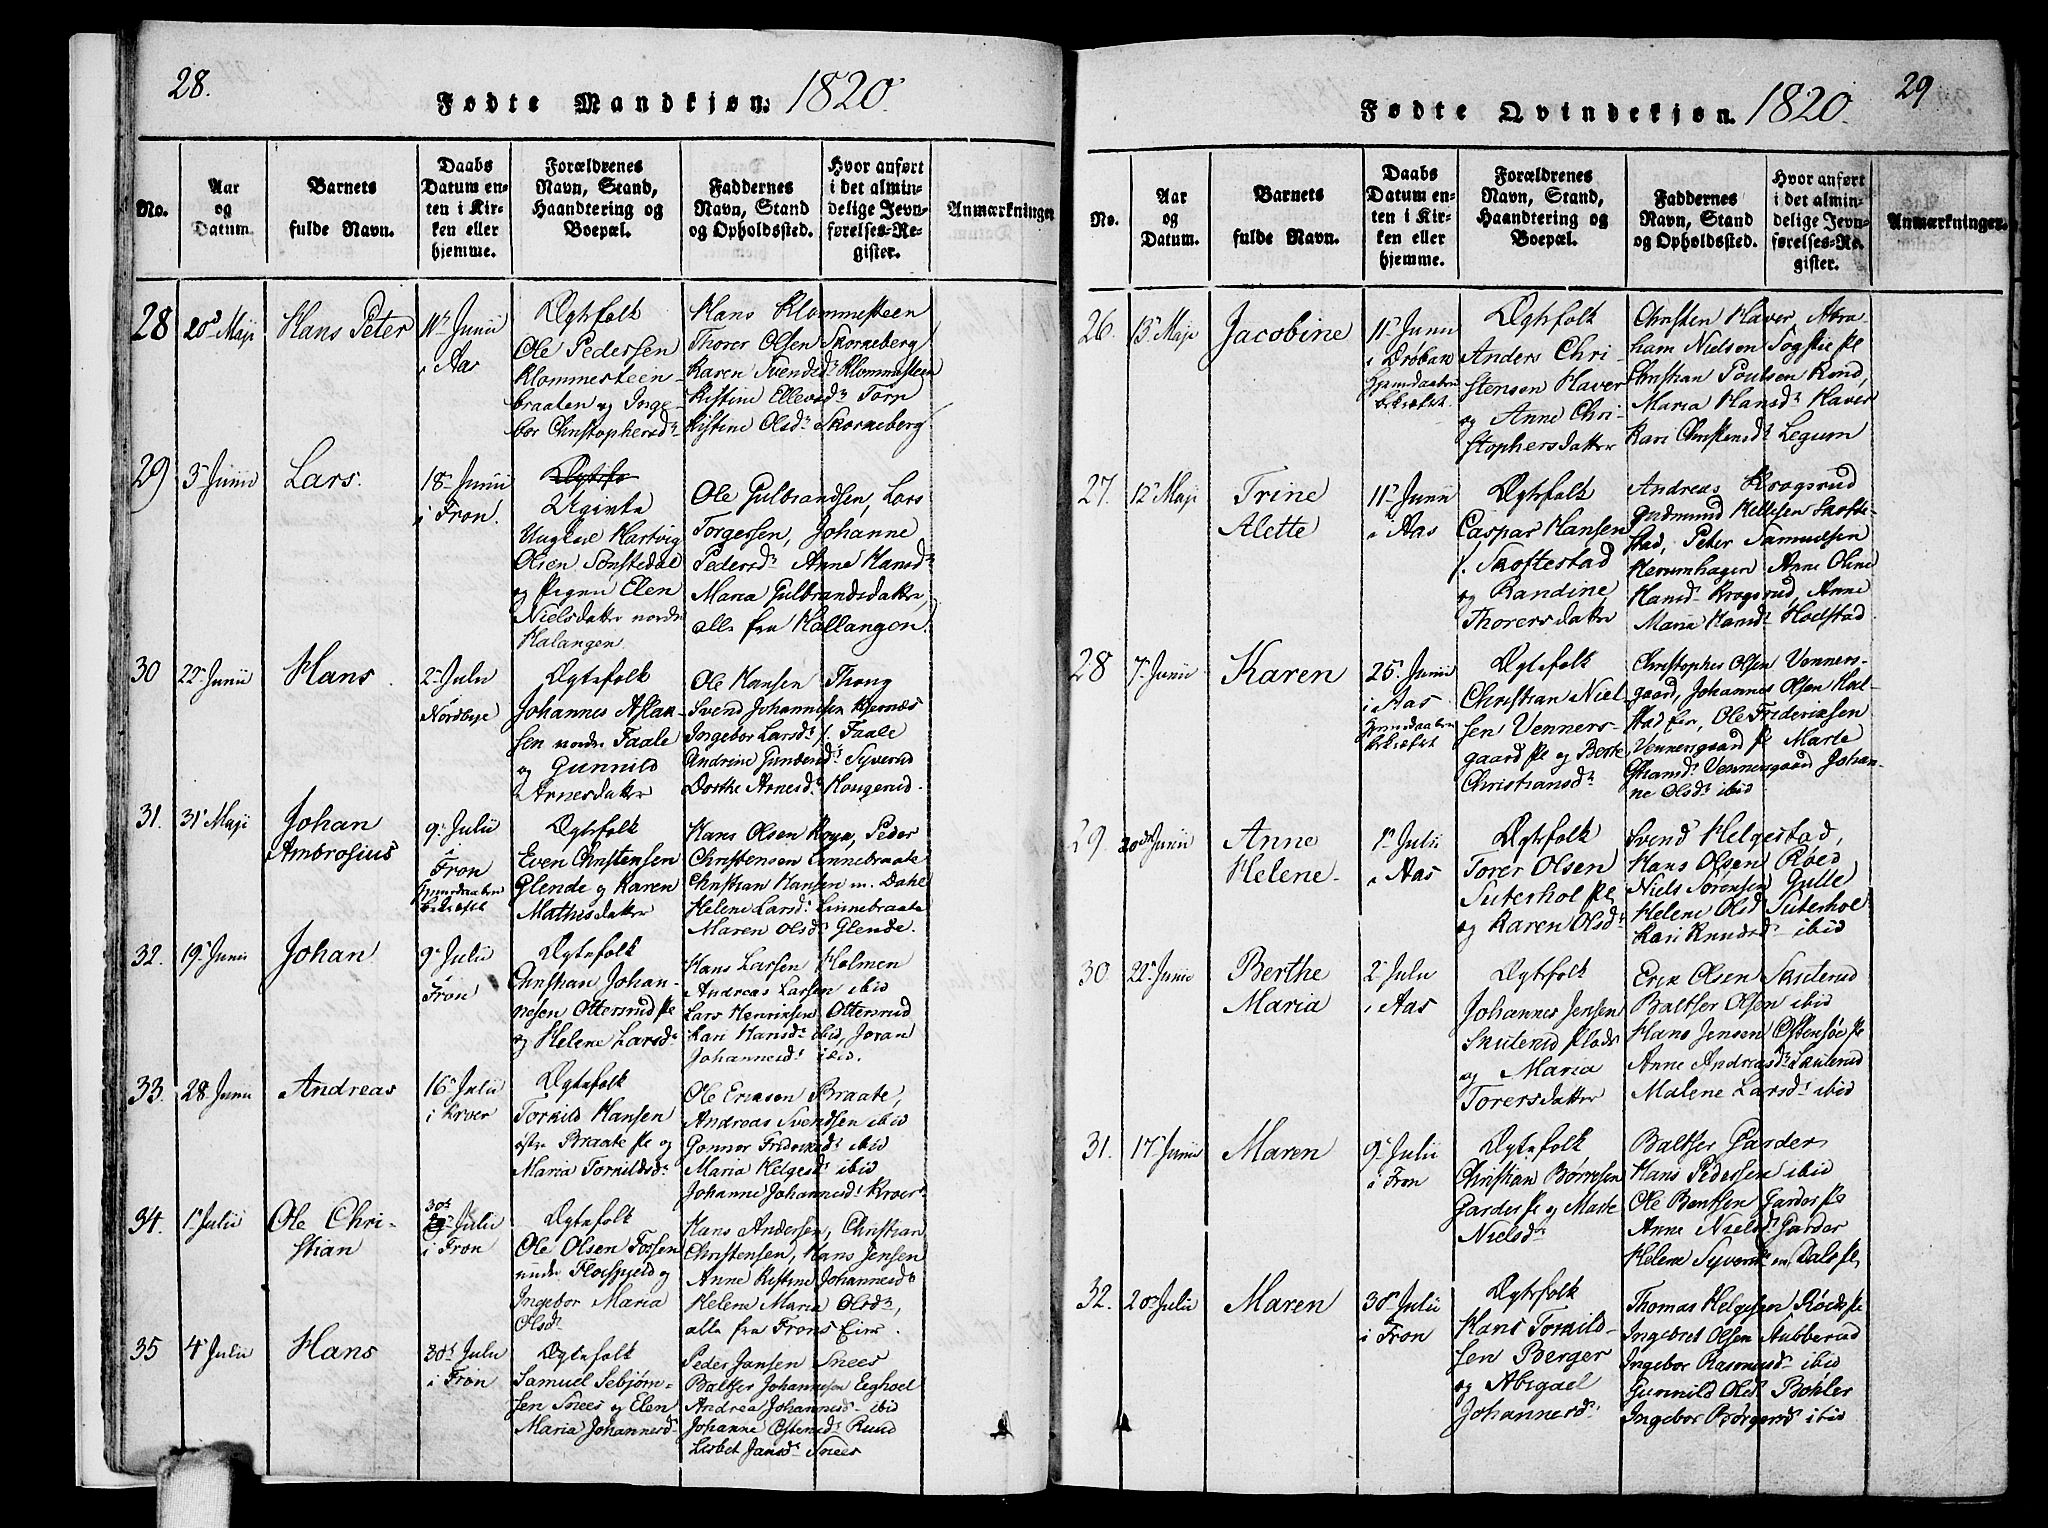 28.
Fødte Mandkjøn: 1820.
No.
Aar
og
Datum.
Barnets
fulde Navn.
Daabs
Datum en-
ten i Kir-
ken eller
hjemme.
Forældrenes
Navn, Stand,
Haandtering og
Boepæl.
Faddernes
Navn, Stand
og Opholdssted.
Hvor anført
i det almin-
delige Jevn-
førelses-Re-
gister.
Anmærkninger
28
20 Maji
Hans Peter
11 Junii
i Aas
Ægtefolk
Ole Pedersen
Klommesteen-
braaten og Inge-
bor Christophersdr
Hans Klommesteen
Thorer Olsen Skorneberg
Karen Svendsdr Klommesteen
Kistine Ellevsdr Torn
Kistine Olsdr Skorneberg
29
3 Junii
Lars.
18 Junii
i Fron.
Ægtefo
Ugivte
Ungkarl Hartvig
Olsen Sønstedal
og Pigen Elen
Nielsdatter nordre
Halangen
Ole Gulbrandsen, Lars
Torgersen, Johanne
Pedersdr Anne Hansdr
Maria Gulbrandsdatter,
alle fra Hallangen.
30
22 Junii
Hans
2 Julii
Nordbye
Ægtefolk
Johannes Aslak-
sen nordre Faale
og Gunnild
Arnesdatter
Ole Hansen Thong
Svend Johannesen Kjernæs
Ingebor Larsdr s. Faale
Andrine Gundersdr Syverud
Dorthe Arnesdr Hougerud.
31.
31 Maji
Johan
Ambrosius
9 Julii
i
Fron
Hjemdaaben
bekræftet
Ægtefolk
Even Christensen
Glende og Karen
Mathisdatter
Hans Olsen Krya, Peder
Christensen Linnebraate
Christian Hansen m. Dahl
Helene Larsdr Linnebraate
Maren Olsdr Glende.
32.
19 Junii
Johan
9 Julii
i
Fron
Ægtefolk
Christian Johan-
nesen Ottersrud Pl
og Helene Larsdr
Hans Larsen Holmen
Andreas Larsen ibid
Lars Henriksen Ottersrud
Kari Hansdr ibid, Joran
Johannesdr ibid.
33.
28 Junii
Andreas
16 Julii
i Kroer
Ægtefolk
Torkild Hansen
østre Braate Pl og
Maria Torkildsdr
Ole Eriksen Braate,
Andreas Svendsen ibid
Gonnor Frideriksdr ibid
Maria Helgesdr ibid
Johanne Johannesdr Kroer.
34.
1 Julii
Ole Chri-
stian
30 Julii
i Fron
Ægtefolk
Ole Olsen Fossen
under Floesfjeld og
Ingebor Maria
Olsdr
Hans Andersen, Christian
Christensen, Hans Jensen
Anne Kistine Johannesdr
Helene Maria Olsdr,
alle fra Frons Eier.
35
4 Julii
Hans
30 Julii
i Fron
Ægtefolk
Samuel Sebjørn-
sen Snees og Elen
Maria Johannesdr
Peder Jansen Snees
Baltser Johannesen Eeghoel
Andrea Johannesdr ibid
Johanne Østensdr Ruud
Lisbet Jansdr Snees
29
Fødte Qvindekjøn. 1820.
No.
Aar
og
Datum.
Barnets
fulde Navn.
Daabs
Datum en-
ten i Kir-
ken eller
hjemme.
Forældrenes
Navn, Stand,
Haandtering og
Boepæl.
Faddernes
Navn, Stand
og Opholdssted.
Hvor anført
i det almin-
delige Jevn-
førelses-Re-
gister.
Anmærkninger.
26.
13 Maji
Jacobine
11 Junii
i Drøbak
Hjemdaaben
bekræftet.
Ægtefolk
Anders Chri-
stensen Haver
og Anne Chri-
stophersdatter
Christen Haver Abra-
ham Nielsen Togstie Pl
Christian Poulsen Rend,
Maria Hansdr Haver
Kari Christensdr Legum
27.
12 Maji
Trine
Alette
11 Junii
i Aas
Ægtefolk
Caspar Hansen
s. Skoftestad
og Randine
Thorersdatter
Andreas Krogsrud
Gudmund Kittilsen Skofte-
stad, Peter Samuelsen
Herumhagen Anne Oline
Hansdr Krogsrud, Anne
Maria Hansdr Hodstad
28
7 Junii
Karen
25 Junii
i Aas
Hjemdaaben
bekræftet
Ægtefolk
Christian Niel-
sen Venners-
gaard Pl og Berte
Christiansdr
Christopher Olsen Venners-
gaard, Johannes Olsen Hal-
stad eier, Ole Frideriksen
Vennersgaard Pl Marte
Hansdr Vennersgaard Johan-
ne Olsdr ibid
29.
20 Junii
Anne
Helene
1 Julii
i Aas
Ægtefolk
Torer Olsen
Suterhol Pl
og Karen Olsdr
Svend Helgestad,
Hans Olsen Røed
Niels Sørensen Gulle
Helene Olsd Suterhol
Kari Knudsdr ibid
30
22 Junii
Berthe
Maria
2 Julii
i Aas
Ægtefolk
Johannes Jensen
Skuterud Plads
og Maria
Torersdatter
Erik Olsen Skuterud
Baltser Olsen ibid
Hans Jensen Østensøe Pl
Anne Andreasdr Skuterud
Malene Larsdr ibid
31.
17 Junii
Maren
9 Julii
i Fron
Ægtefolk
Christian Børresen
Garder Pl og Marte
Nielsdr
Baltser Garder
Hans Pedersen ibid
Ole Bentsen Garder Pl
Anne Nielsdr Garder
Helene Syversdr m. Dals Pl.
32.
20 Julii
Maren
30 Julii
i Fron
Ægtefolk
Hans Torkild-
sen Berger
og Abigael
Johannesdr
Thomas Helgesen Røed Pl
Ingebret Olsen Stubberud
Ingebor Rasmusdr ibid
Gunnild Olsd Bohler
Ingebor Børgersd ibid